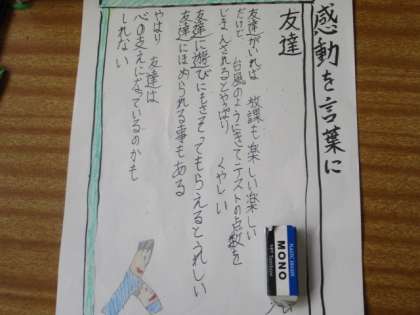 感動を言葉に
友達
友達がいれば 放課も楽しい楽しい
だけど 台風のようにきてテストの点数を
じまんされるとやっぱり くやしい
友達に遊びにもさそってもらえるとうれしい
友達にほめられる事もある
やはり 友達は
心の支えになっているのかも
しれない
MONO